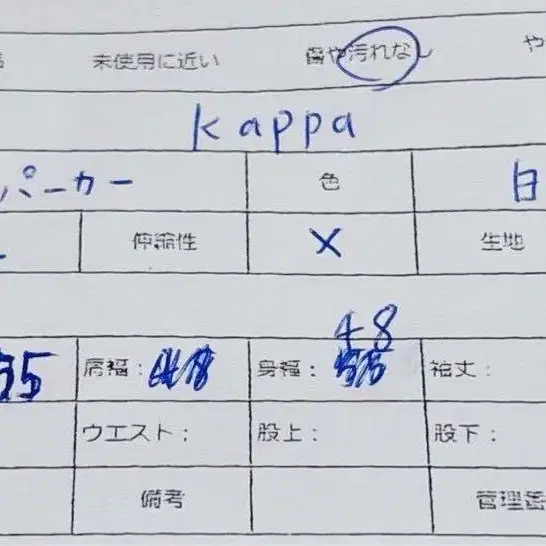 未使用に近い 傷や汚れなし や
kappa
パーカー 色
伸縮性 × 生地
48
55 肩幅: 身幅: 袖丈:
ウエスト: 股上: 股下:
備考 管理番